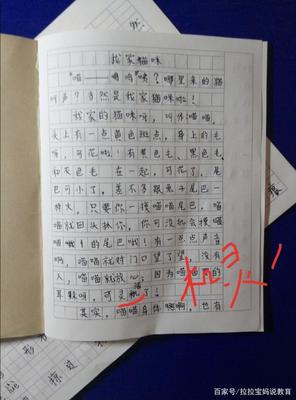 我家猫咪
“喵——喵呜”咦?哪里来的猫
叫声?当然是我家猫咪啦!
我家的猫咪呀,叫作喵喵,
头上有一点黄色斑点,身上的毛
呀,可花啦!有黄色毛、黑色毛
和灰色毛在一起,可花了,尾
巴可小了,差不多跟兔子尾巴一
样大,只要你一摸喵喵尾巴,喵
喵就回头抓你,你可没机会摸喵
喵哦!的尾巴哦!有一点点声音
啊,喵喵就对门口望了望,没有
人,喵喵就放心,因为喵喵的
耳朵呀,可灵了!
机灵!
其实,喵喵身体呀,也有
百家号/拉拉宝妈说教育